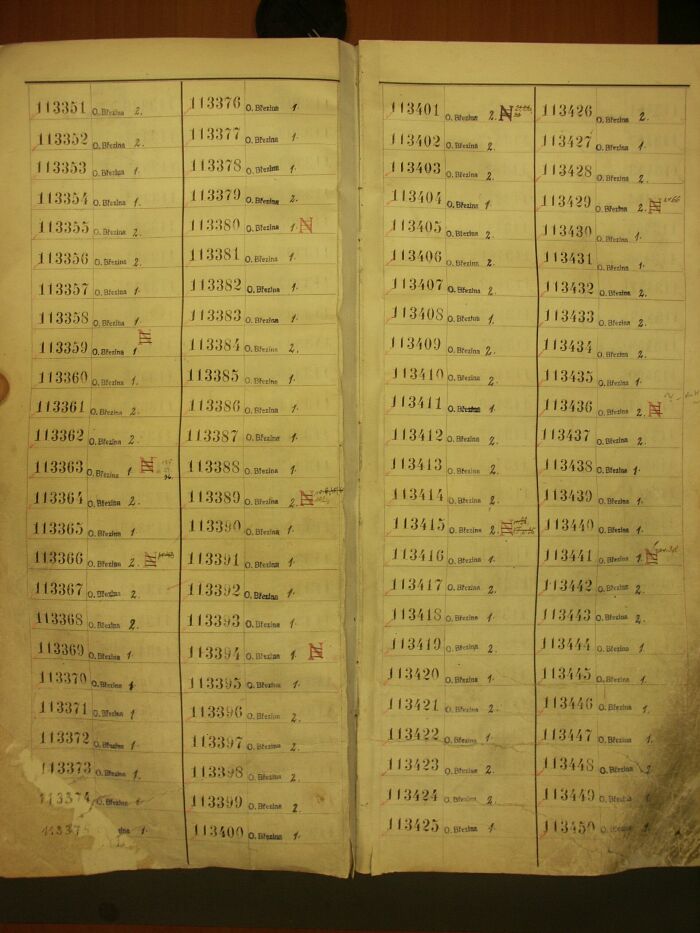 113351 O. Březina 2.
113352 O. Březina 2.
113353 O. Březina 1.
113354 O. Březina 1.
113355 O. Březina 2.
113356 O. Březina 2.
113357 O. Březina 1.
113358 O. Březina 1.
113359 O. Březina 1
113360 O. Březina 1.
113361 O. Březina 2.
113362 O. Březina 2.
113363 O. Březina 1
113364 O. Březina 2.
113365 O. Březina 1.
113366 O. Březina 2.
113367 O. Březina 2.
113368 O. Březina 2.
113369 O. Březina 1.
113370 O. Březina 1
113371 O. Březina 1
113372 O. Březina 1.
113373 O. Březina 1.
113374 O. Březina 1.
113375 zina 1.
113376 O. Březina 1.
113377 O. Březina 1.
113378 O. Březina 1.
113379 O. Březina 2.
113380 O. Březina 1. N
113381 O. Březina 1.
113382 O. Březina 1.
113383 O. Březina 1.
113384 O. Březina 2.
113385 O. Březina 1.
113386 O. Březina 1.
113387 O. Březina 1.
113388 O. Březina 1.
113389 O. Březina 2. N
113390 O. Březina 1.
113391 O. Březina 1.
113392 O. Březina 1.
113393 O. Březina 1.
113394 O. Březina 1. N
113395 O. Březina 1.
113396 O. Březina 2.
113397 O. Březina 2.
113398 O. Březina 2.
113399 O. Březina 2.
113400 O. Březina 1.
113401 O. Březina 2. N
113402 O. Březina 2.
113403 O. Březina 2.
113404 O. Březina 1.
113405 O. Březina 2.
113406 O. Březina 2.
113407 O. Březina 2.
113408 O. Březina 1.
113409 O. Březina 2.
113410 O. Březina 2.
113411 O. Březina 1.
113412 O. Březina 2.
113413 O. Březina 2.
113414 O. Březina 2.
113415 O. Březina 2. N
113416 O. Březina 1.
113417 O. Březina 2.
113418 O. Březina 1.
113419 O. Březina 2.
113420 O. Březina 1.
113421 O. Březina 2.
113422 O. Březina 1.
113423 O. Březina 2.
113424 O. Březina 2.
113425 O. Březina 1.
113426 O. Březina 2.
113427 O. Březina 1.
113428 O. Březina 2.
113429 O. Březina 2. N
113430 O. Březina 1.
113431 O. Březina 1.
113432 O. Březina 2.
113433 O. Březina 2.
113434 O. Březina 2.
113435 O. Březina 1.
113436 O. Březina 2. N
113437 O. Březina 2.
113438 O. Březina 1.
113439 O. Březina 1.
113440 O. Březina 1.
113441 O. Březina 1. N
113442 O. Březina 2.
113443 O. Březina 2.
113444 O. Březina 1.
113445 O. Březina 1.
113446 O. Březina 1.
113447 O. Březina 1.
113448 O. Březina 2.
113449 O. Březina 1.
113450 O. Březina 1.